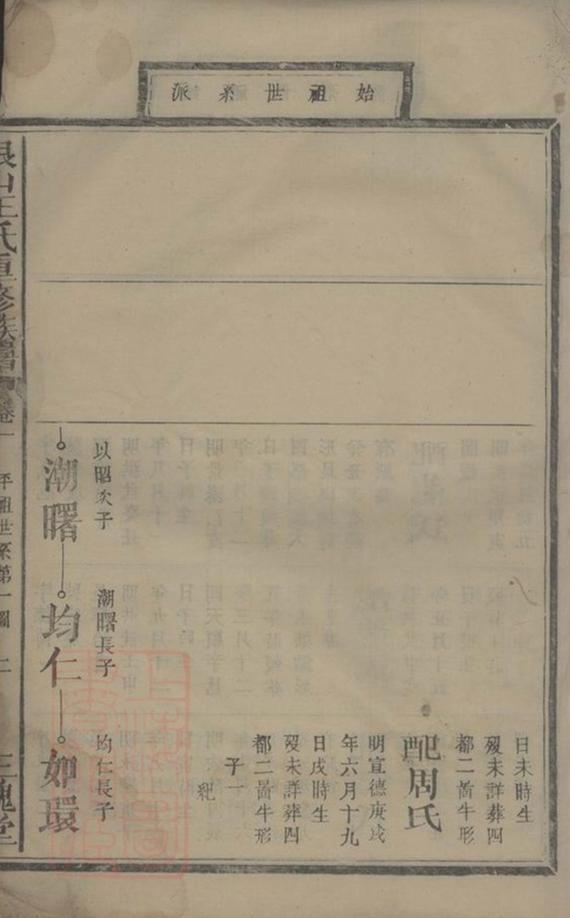 始祖世系派
日未時生
歿未詳葬四
都二啚牛形
配周氏
明宣德庚戌
年六月十九
日戌時生
歿未詳葬四
都二啚牛形
子一
䊵
以昭次子
潮曙
潮曙長子
均仁
均仁長子
如環
山王氏重修族譜 卷一 世系第一圖 二 三槐堂